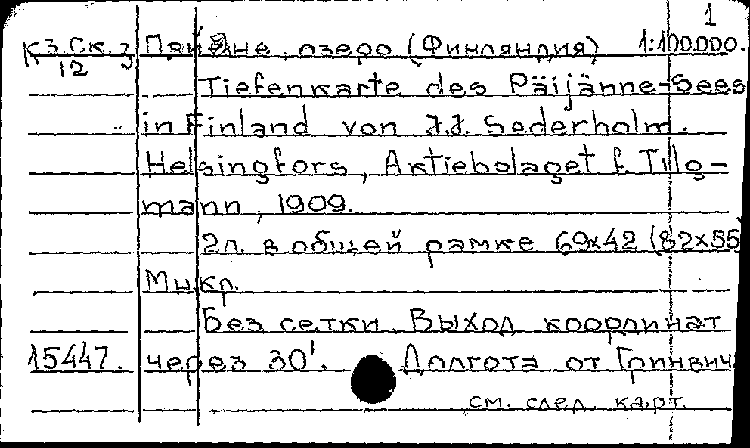 1
К3.Ск.3 Пяйяне, озеро (Финляндия) 1:100.000.
12
Tiefenkarte des Päijänne-Sees
in Finland von J.J. Sederholm.
Helsingfors, Aktiebolaget f. Tilg-
mann, 1909.
2л. в общей рамке 69x42 (82x55)
Мн.кр.
Без сетки. Выход координат
15447. через 30'. Долгота от Гринвич
см. след. карт.